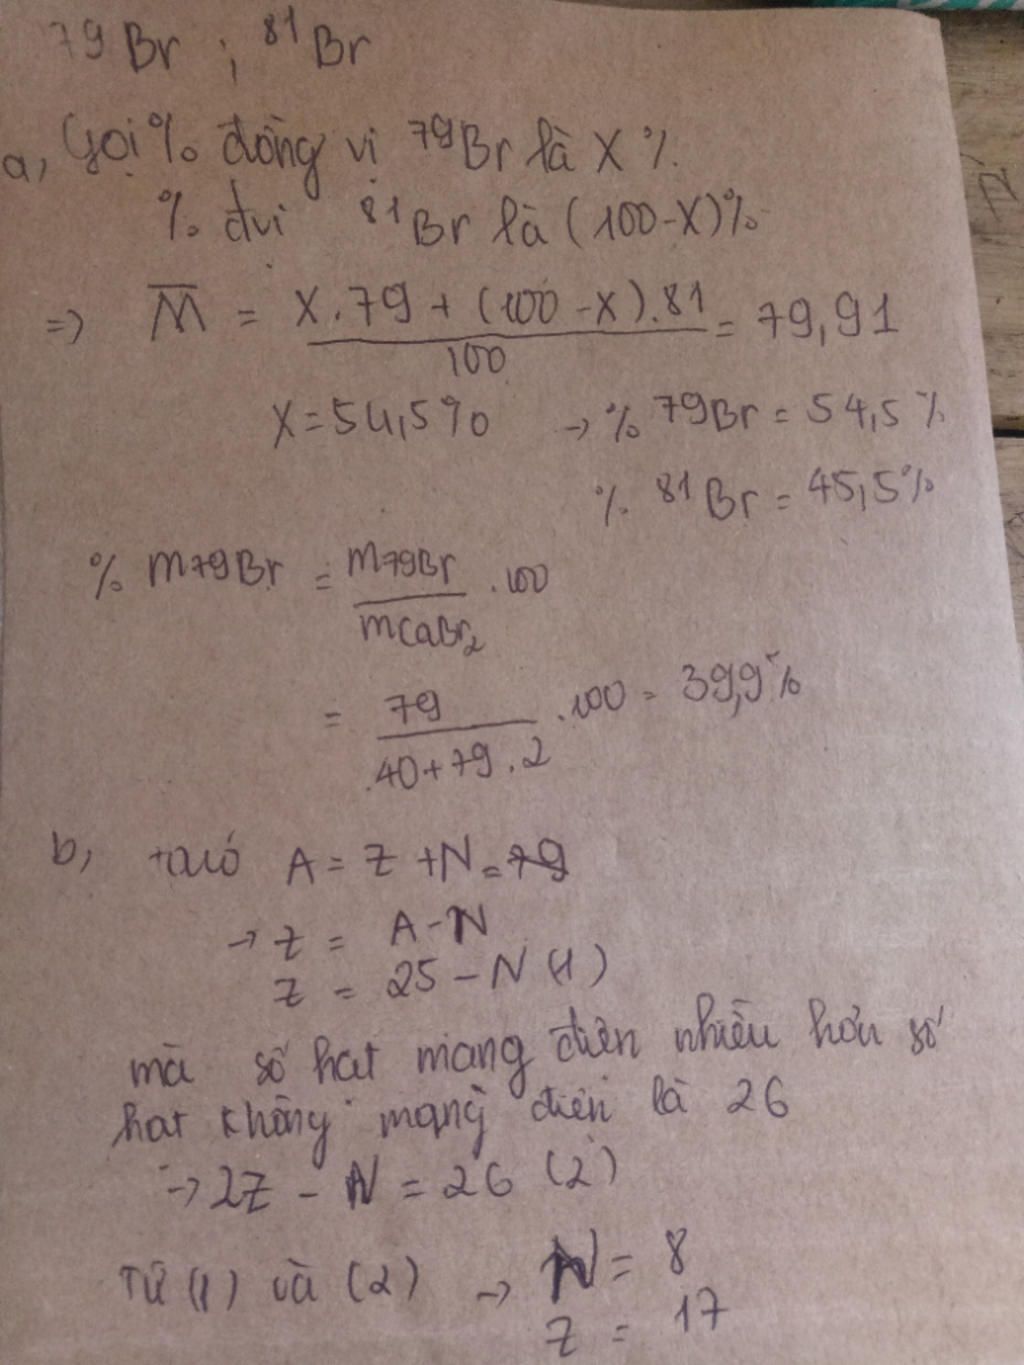 79Br ; 81Br
a, Gọi % đồng vị 79Br là X %.
% đvi 81Br là (100-X)%
=> M̅ = X.79 + (100-X).81 / 100 = 79,91
X = 54,5% → % 79Br = 54,5 %
% 81Br = 45,5%
% m79Br = m79Br / mCaBr2 . 100
= 79 / 40+79.2 . 100 = 39,9%
b, ta có A = Z + N = 79
→ Z = A - N
Z = 25 - N (1)
mà số hạt mang điện nhiều hơn số
hạt không mang điện là 26
→ 2Z - N = 26 (2)
Từ (1) và (2) → N = 8
Z = 17